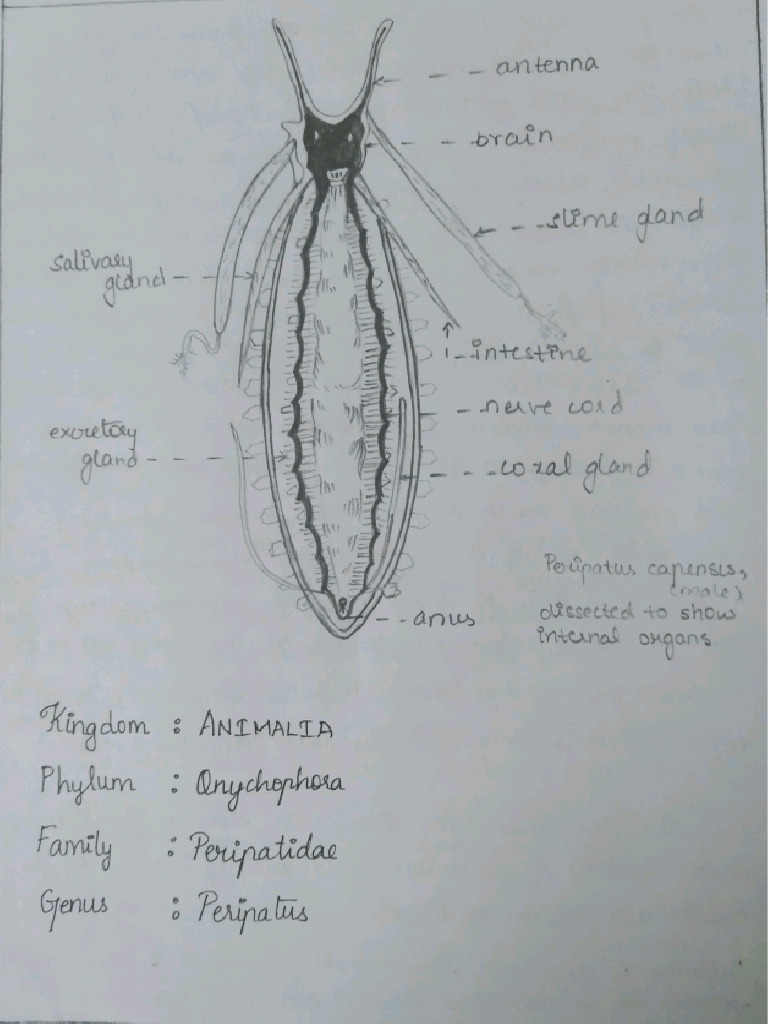 antenna
brain
slime gland
salivary
gland
intestine
nerve cord
excretory
gland
coxal gland
Peripatus capensis,
(male)
dissected to show
internal organs
anus
Kingdom : ANIMALIA
Phylum : Onychophora
Family : Peripatidae
Genus : Peripatus